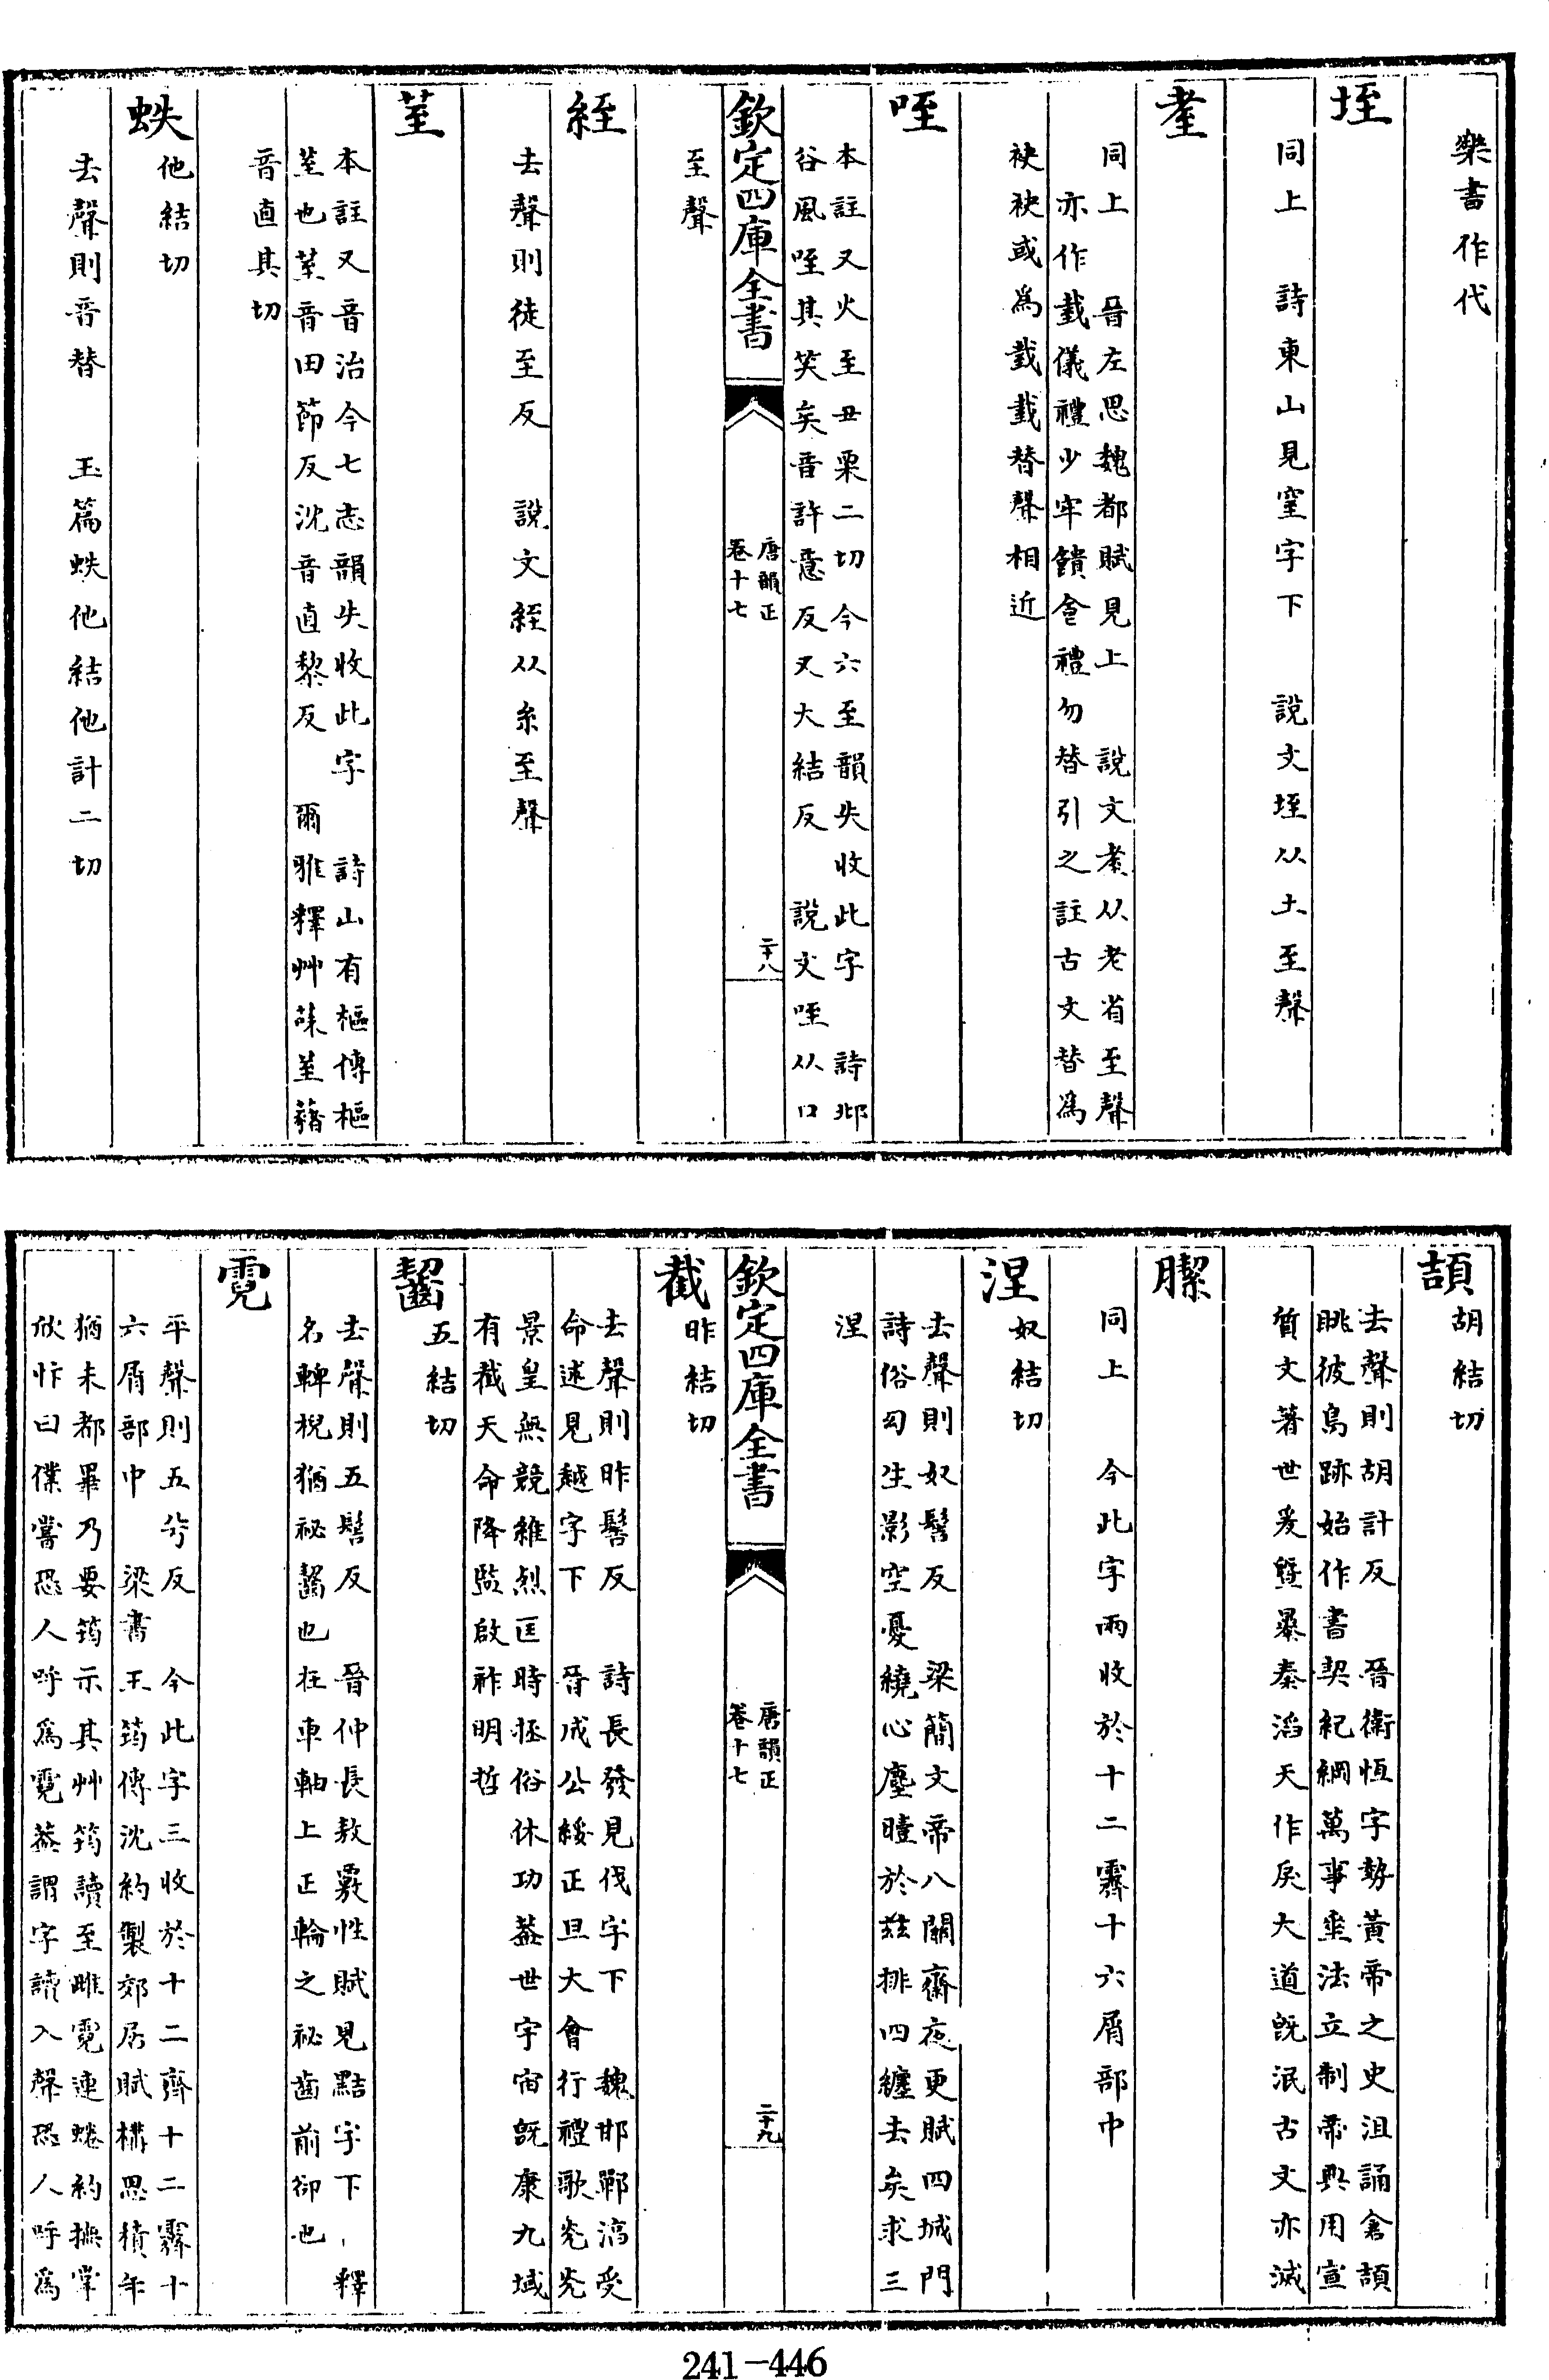 樂書作代
垤
同上　詩東山見窒字下　說文垤从土至聲
耊
同上　晉左思魏都賦見上　說文耊从老省至聲
亦作臷儀禮少牢饋食禮勿替引之註古文替為
袂袂或為臷臷替聲相近
咥
本註又火至丑栗二切今六至韻失收此字　詩邶
谷風咥其笑矣音許意反又大結反　說文咥从口
欽定四庫全書
唐韻正
卷十七
二十八
至聲
絰
去聲則徒至反　說文絰从糸至聲
荎
本註又音治今七志韻失收此字　詩山有樞傳樞
荎也荎音田節反沈音直黎反　爾雅釋艸菋荎藸
音直其切
蛈
他結切
去聲則音替　玉篇蛈他結他計二切
頡
胡結切
去聲則胡計反　晉衛恆字勢黃帝之史沮誦倉頡
眺彼鳥跡始作書契紀綱萬事垂法立制帝典用宣
質文著世爰曁暴秦滔天作戾大道旣泯古文亦滅
䐼
同上　今此字兩收於十二霽十六屑部中
涅
奴結切
去聲則奴髻反　梁簡文帝八關齋夜更賦四城門
詩俗幻生影空憂繞心塵曀於茲排四纏去矣求三
涅
欽定四庫全書
唐韻正
卷十七
二十九
截
昨結切
去聲則昨髻反　詩長發見伐字下　魏邯鄲淳受
命述見越字下　晉成公綏正旦大會行禮歌堂堂
景皇無競維烈匡時拯俗休功蓋世宇宙旣康九域
有截天命降監啟祚明哲
齧
五結切
去聲則五髻反　晉仲長敖覈性賦見黠字下　釋
名轉棿猶祕齧也在車軸上正輪之祕齒前卻也
霓
平聲則五兮反　今此字三收於十二齊十二霽十
六屑部中　梁書王筠傳沈約製郊居賦構思積年
猶未都畢乃要筠示其艸筠讀至雌霓連蜷約撫掌
欣忭曰僕嘗恐人呼為霓蓋謂字讀入聲恐人呼為
241-446